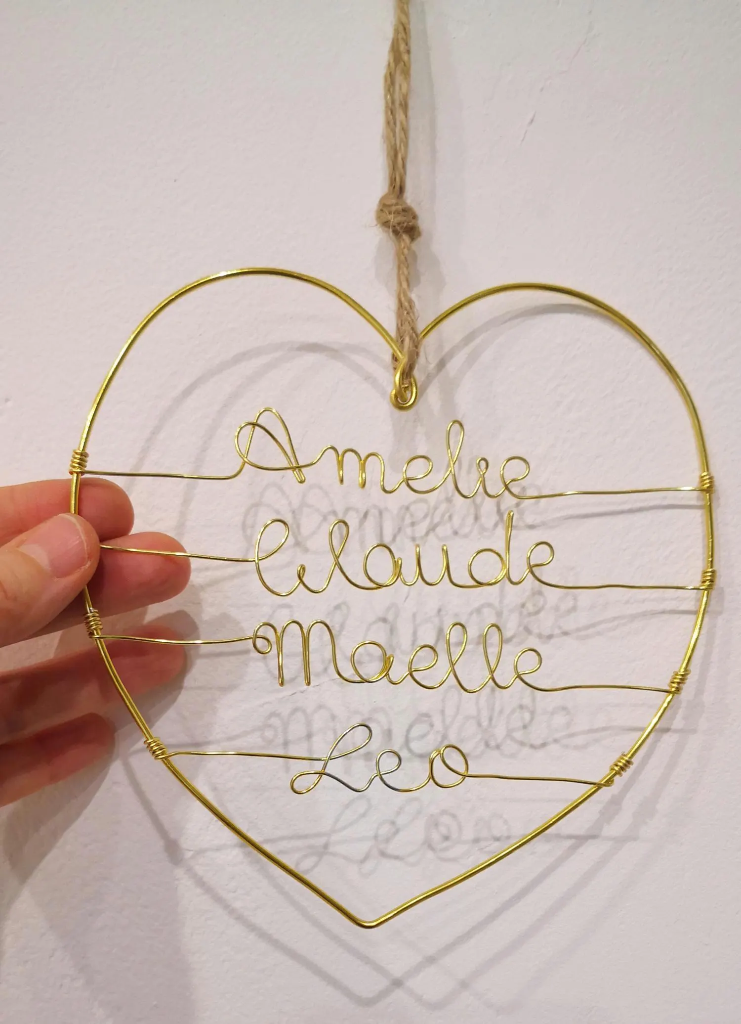 Amelie
Claude
Maelle
Leo